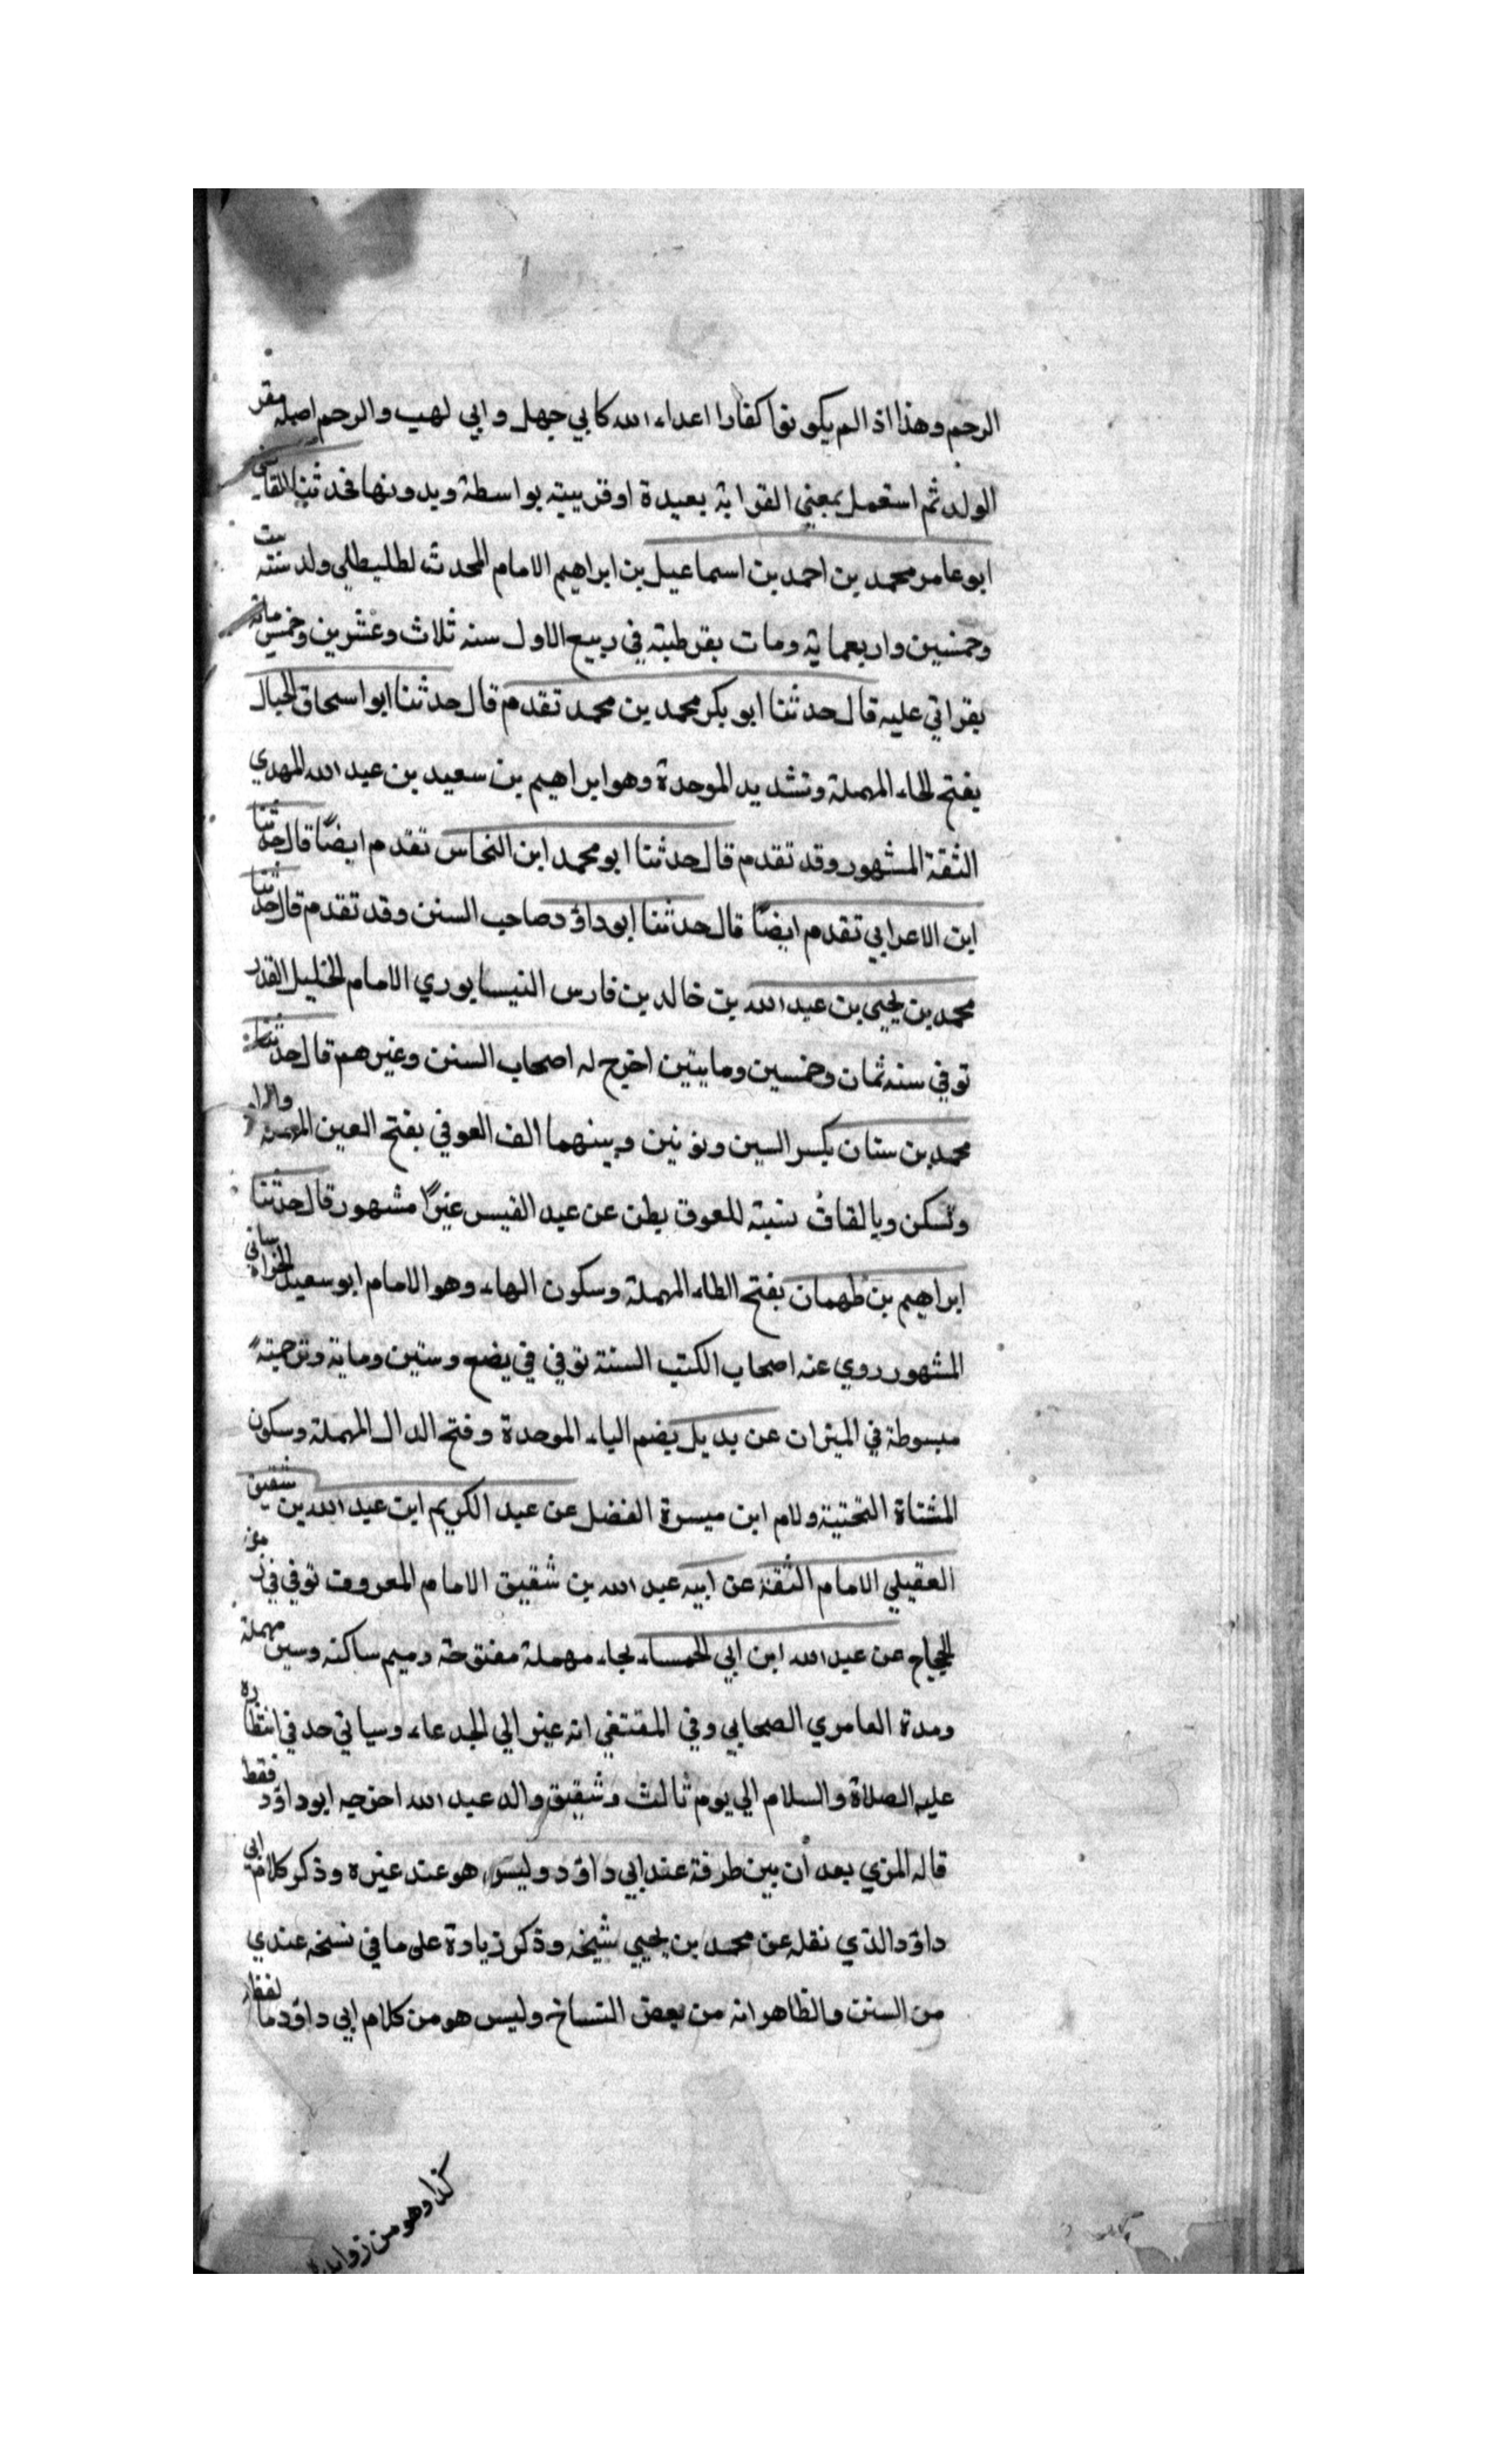 الرحم وهذا اذ الم يكونوا كفارا اعداء الله كابي جهل وابي لهب والرحم اصله مقر
الولد ثم استعمل بمعني القرابة بعيدة اوقريبية بواسطة وبدونها فحدثنا القاضي
ابوعامر محمد بن احمد بن اسماعيل بن ابراهيم الامام المحدث لطليطلي ولد سنته ست
وخمسين واربعماية ومات بقرطبته في ربيع الاول سنه ثلاث وعشرين وخمس مائة
بقراتي عليه قال حدثنا ابو بكر محمد بن محمد تقدم قال حدثنا ابو اسحاق الحبال
بفتح الحاء المهملة وتشديد الموحدة وهو ابراهيم بن سعيد بن عبد الله المهدي
الثقة المشهور وقد تقدم قال حدثنا ابو محمد ابن النحاس تقدم ايضًا قال حدثنا
ابن الاعرابي تقدم ايضًا قال حدثنا ابوداؤد صاحب السنن وقد تقدم قال حدثنا
محمد بن يحيي بن عبد الله بن خالد بن فارس النيسابوري الامام الخليل القدر
توفي سنه ثمان وخمسين ومايتين اخرج له اصحاب السنن وغيرهم قال حدثنا
محمد بن سنان بكسر السين ونونين وبينهما الف العوفي بفتح العين المهملة والراء
وتسكن وبالقاف نسبته للعوق بطن عن عبد القيس غيرًا مشهور قال حدثنا
ابراهيم بن طهمان بفتح الطاء المهملة وسكون الهاء وهو الامام ابو سعيد الخراساني
المشهور روي عنه اصحاب الكتب الستة توفي في بضع وستين وماية وترجمته
مبسوطة في الميزان عن بديل بضم الباء الموحدة وفتح الدال المهملة وسكون
المثناة التحتية ولام ابن ميسرة الفضل عن عبد الكريم ابن عبد الله بن شقيق
العقيلي الامام الثقة عن ابيه عبد الله بن شقيق الامام المعروف توفي في زمن
الحجاج عن عبد الله ابن ابي الحمساء بحاء مهملة مفتوحة وميم ساكنه وسين مهملة
ومدة العامري الصحابي وفي المقتفي انه غير ابي الجدعاء وسياتي حد في انتظاره
عليه الصلاة والسلام الي يوم ثالث وشقيق والد عبد الله اخرجه ابوداؤد فقط
قاله المزي بعد أن بين طرفة عند ابي داؤد وليس هو عند غيره وذكر كلام ابي
داؤد الذي نقله عن محمد بن يحيي شيخه وذكر زيادة على ما في نسخه عندي
من السنن والظاهر انه من بعض النساخ وليس هو من كلام ابي داؤد
كذا وهو من زوايد